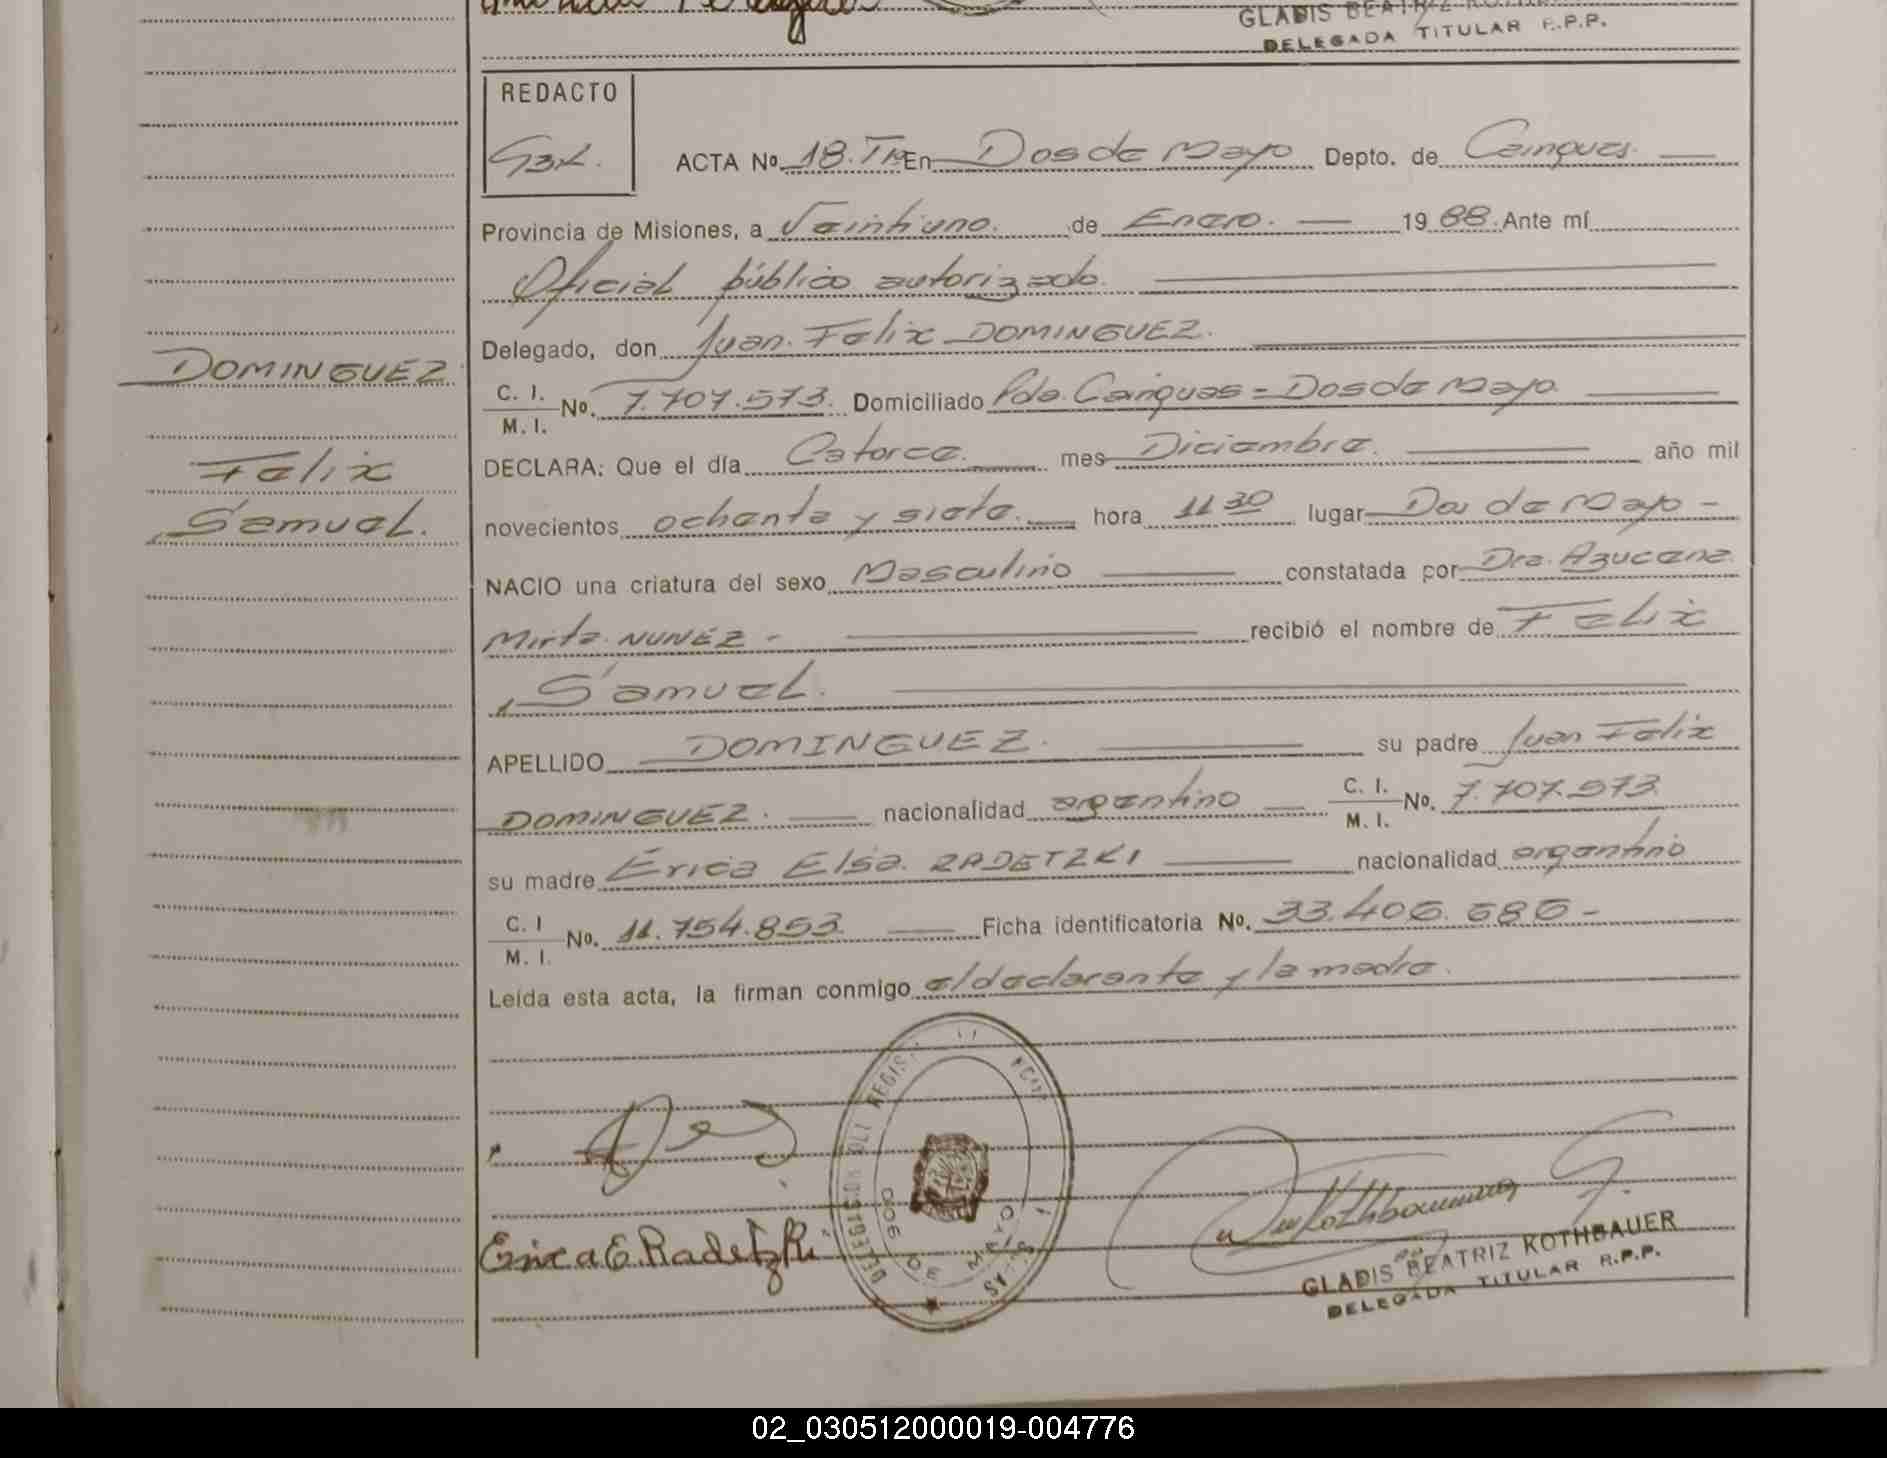 GLADIS BEATRIZ
DELEGADA TITULAR R.P.P.
REDACTO
ACTA No 18. En Dos de Mayo Depto. de Cainguas.
Provincia de Misiones, a Veintiuno. de Enero. 19 88. Ante mí
Oficial público autorizado.
Delegado, don Juan. Felix DOMINGUEZ.
DOMINGUEZ
C. I.
M. I. No. 7.707.573. Domiciliado Pdo. Cainguas = Dos de Mayo
DECLARA: Que el día Catorce. mes Diciembre. año mil
Felix
novecientos ochenta y siete. hora 11 30 lugar Dos de Mayo -
Samuel.
NACIO una criatura del sexo Masculino constatada por Dra. Azucena
Mirta NUNEZ - recibió el nombre de Felix
Samuel.
APELLIDO DOMINGUEZ. su padre Juan Felix
DOMINGUEZ. nacionalidad argentino C. I.
M. I. No. 7.707.573.
su madre Erica Elsa. RADETZKI nacionalidad argentino
C. I
M. I. No. 11.754.853. Ficha identificatoria No. 33.406.686 -
Leída esta acta, la firman conmigo el declarante y la madre.
Erica E. Radetzki
DOS DE MAYO
GLADIS BEATRIZ KOTHBAUER
DELEGADA TITULAR R.P.P.
02_030512000019-004776